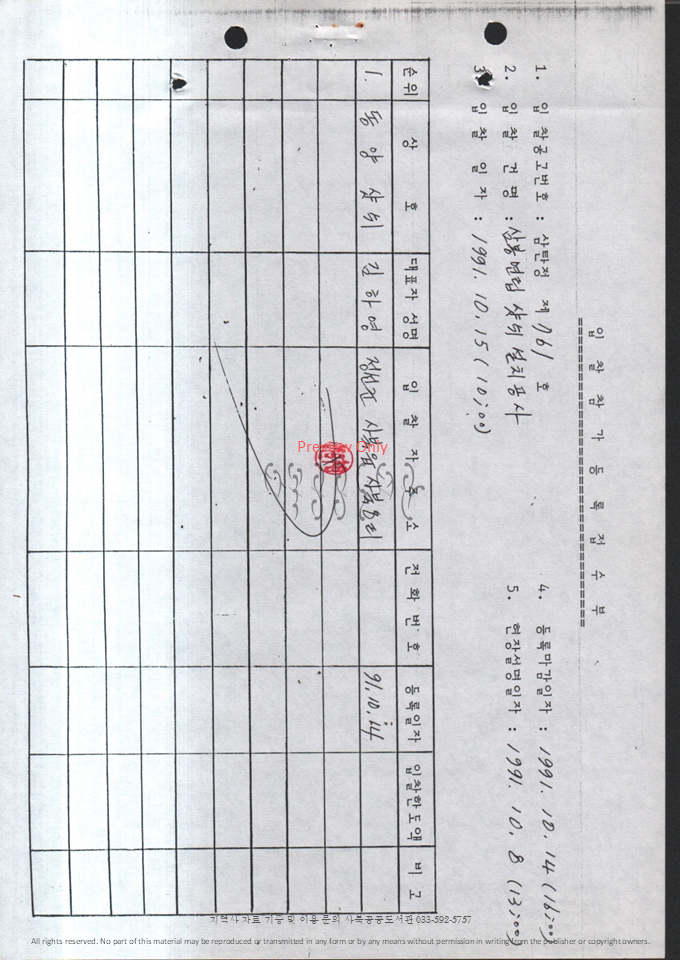 입찰참가등록접수부
1. 입찰공고번호 : 삼탄정 제 761 호
2. 입찰건명 : 삼봉연립 샷쉬 설치공사
3. 입찰일자 : 1991. 10. 15 (10:00)
4. 등록마감일자 : 1991. 10. 14 (16:00)
5. 현장설명일자 : 1991. 10. 8 (13:00)
순위 상호 대표자 성명 입찰자 주소 전화번호 등록일자 입찰한도액 비고
1. 동양샷쉬 김하영 정선군 사북읍 사북리 91.10.14
Preview Only
지역사 자료 기증 및 이용 문의 사북공공도서관 033-592-5757
All rights reserved. No part of this material may be reproduced or transmitted in any form or by any means without permission in writing from the publisher or copyright owners.